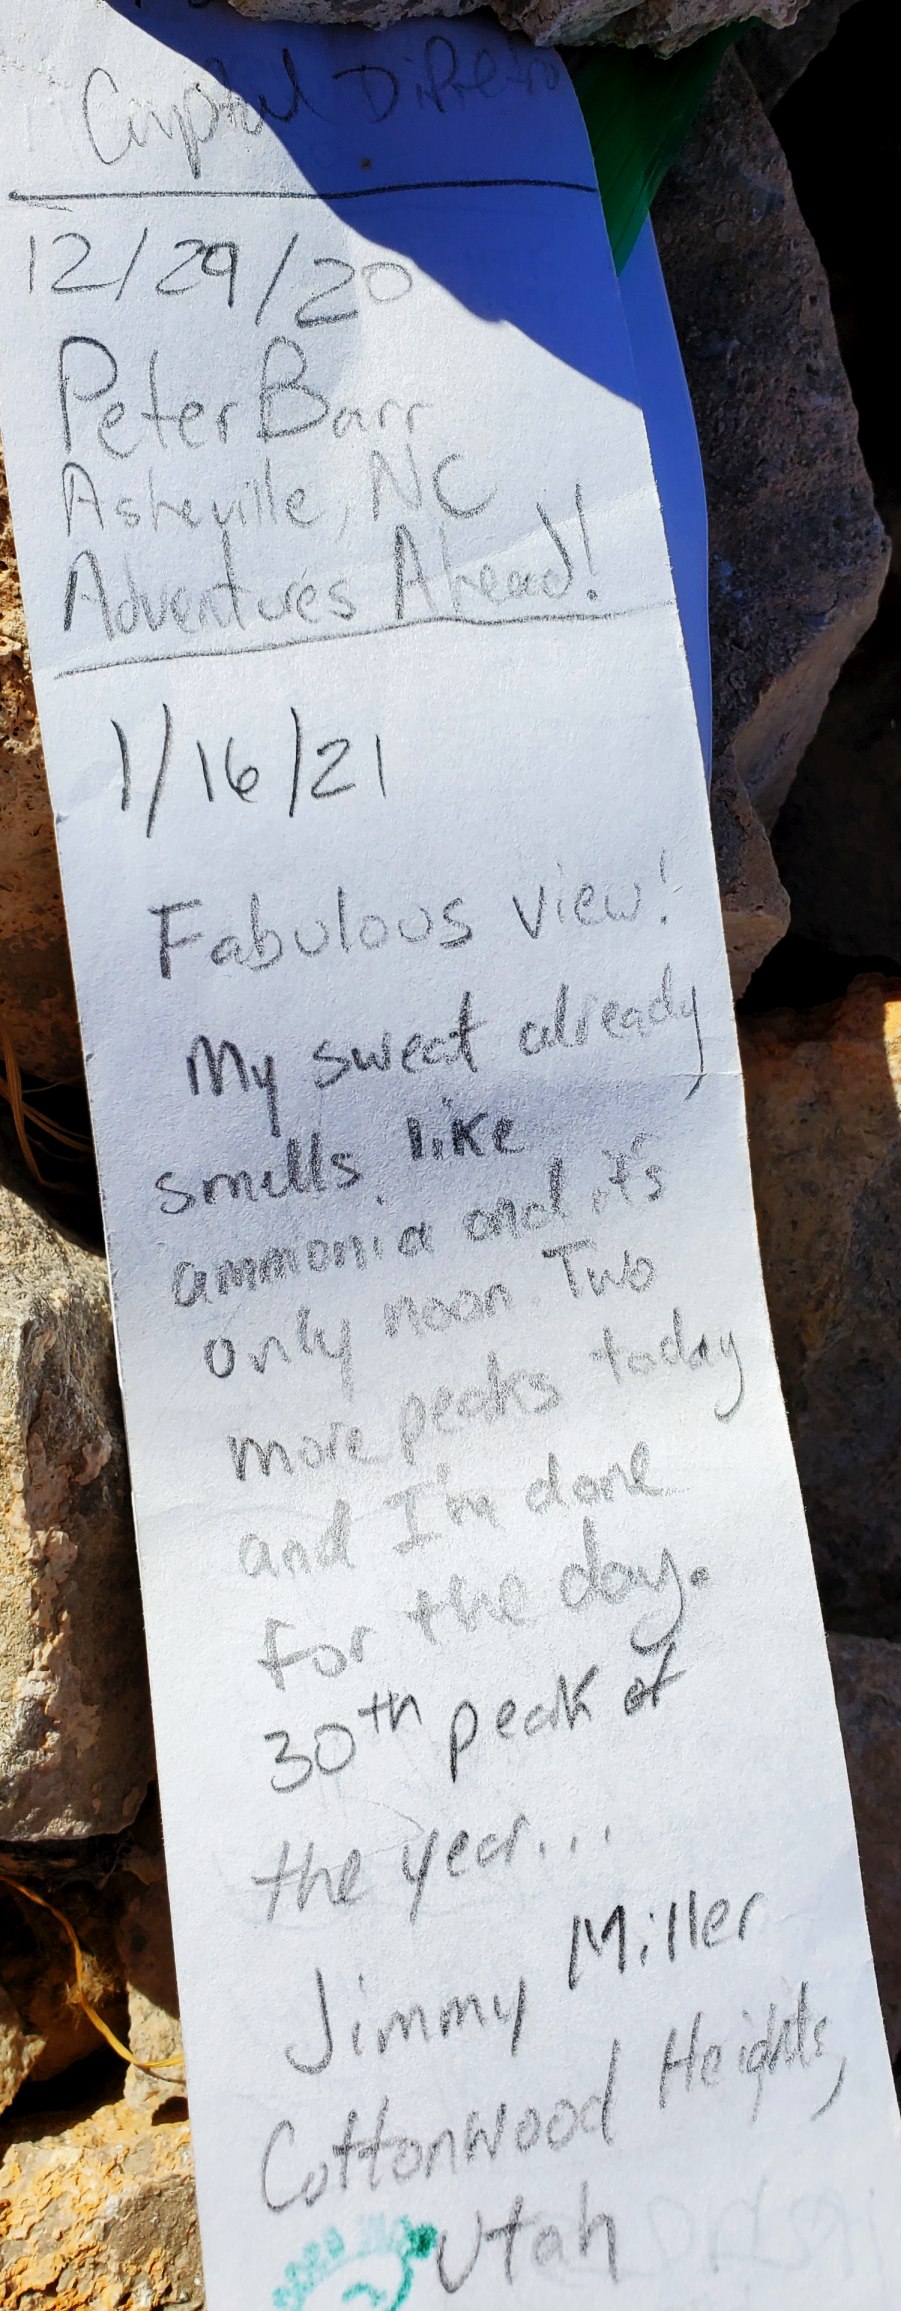 Crystal
12/29/20
Peter Barr
Asheville, NC
Adventures Ahead!
1/16/21
Fabulous view!
My sweat already
smells like
ammonia and it's
only noon. Two
more peaks today
and I'm done
for the day.
30th peak of
the year...
Jimmy Miller
Cottonwood Heights,
Utah